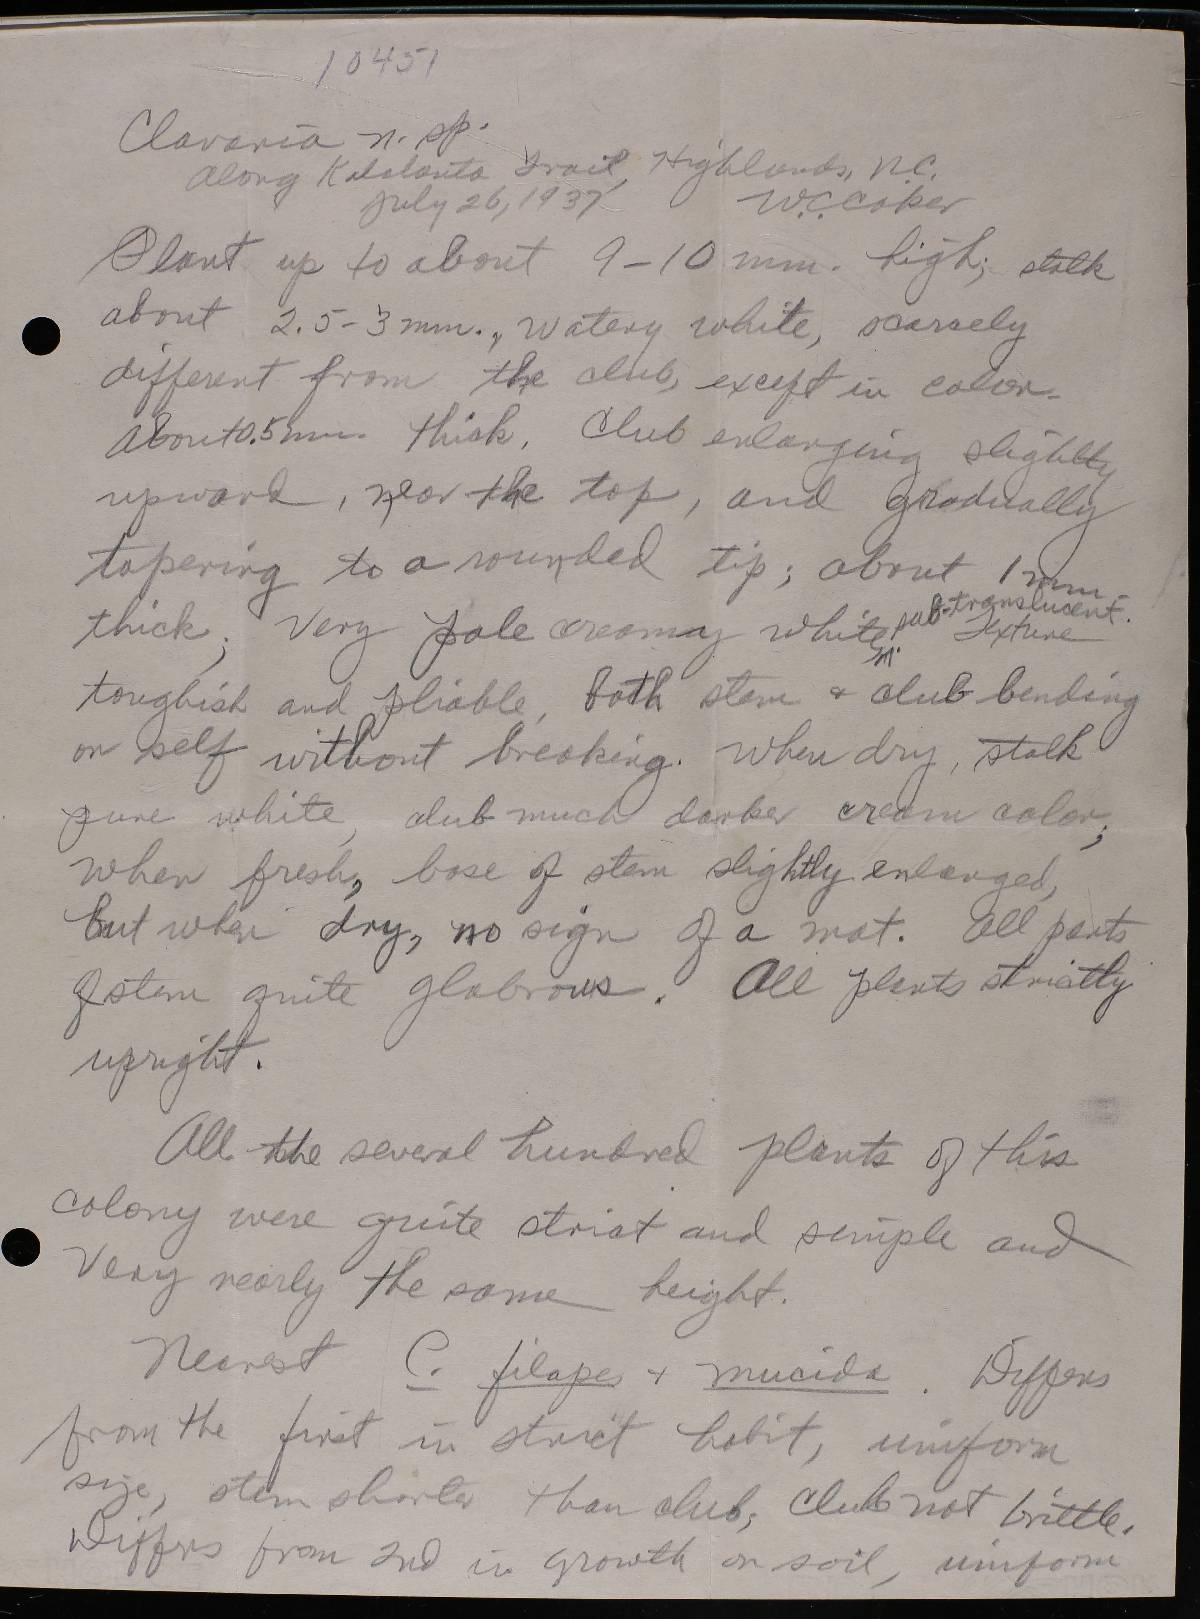 10451
Clavaria n. sp.
Along Kalalanta Trail, Highlands, N.C.
July 26, 1937 W.C. Coker
Plant up to about 9-10 mm. high; stalk
about 2.5-3 mm., watery white, scarsely
different from the club, except in color.
About 0.5 mm. thick. Club enlarging slightly
upward, near the top, and gradually
tapering to a rounded tip; about 1 mm.
thick; Very pale creamy white, sub-translucent. Texture
toughish and pliable, both stem & club bending
on self without breaking. When dry, stalk
pure white, club much darker cream color;
when fresh, base of stem slightly enlarged,
but when dry, no sign of a mat. All parts
of stem quite glabrous. All plants strictly
upright.
All the several hundred plants of this
colony were quite strict and simple and
very nearly the same height.
Nearest C. filapes & mucida. Differs
from the first in strict habit, uniform
size, stem shorter than club, club not brittle.
Differs from 2nd in growth on soil, uniform